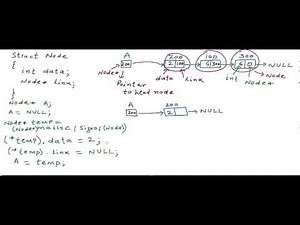 Struct Node
{
int data;
Node* link;
}
Node* A;
A = NULL;
Node* temp =
(Node*)malloc(sizeof(Node))
(*temp).data = 2;
(*temp).link = NULL;
A = temp;
A 200 100 300
200 2 100 300 0 NULL
Node* data link int Node*
Pointer
to head node
A 200
200 2 NULL